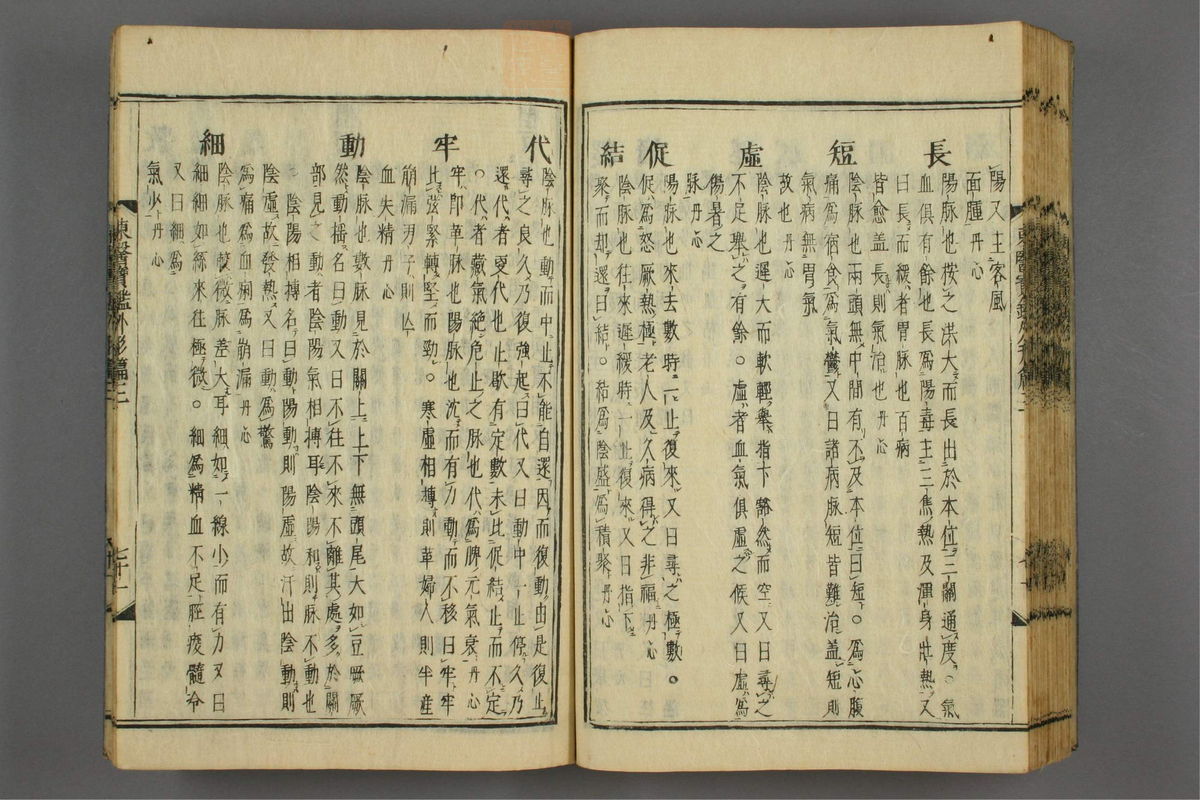 陽又主客風
面腫丹心
長
陽脉也按之洪大而長出於本位三關通度。氣
血俱有餘也長爲陽毒主三焦熱及渾身壯熱又
曰長而緩者胃脉也百病
皆愈盖長則氣治也丹心
短
陰脉也兩頭無中間有不及本位曰短。爲心腹
痛爲宿食爲氣鬱又曰諸病脉短皆難治盖短則
氣病無胃氣
故也丹心
虛
陰脉也遲大而軟輕舉指下豁然而空又曰尋之
不足舉之有餘。虛者血氣俱虛之候又曰虛爲
傷暑之
脉丹心
促
陽脉也來去數時一止復來又曰尋之極數。
促爲怒厥熱極老人及久病得之非福丹心
結
陰脉也往來遲緩時一止復來又曰指下
聚而却還曰結。結爲陰盛爲積聚丹心
代
陰脉也動而中止不能自還因而復動由是復止
尋之良久乃復強起曰代又曰動中一止停久乃
還代者更代也止歇有定數未比促結止而不定
。代者藏氣絶危止之脉也代爲脾元氣衰丹心
牢
牢即革脉也陽脉也沈而有力動而不移曰牢牢
比弦緊轉堅而勁。寒虛相搏則革婦人則半産
崩漏男子則亡
血失精丹心
動
陰脉也數脉見於關上上下無頭尾大如豆厥厥
然動摇名曰動又曰不往不來不離其處多於關
部見之動者陰陽氣相搏耳陰陽和則脉不動也
。陰陽相搏名曰動陽動則陽虛故汗出陰動則
陰虛故發熱又曰動爲驚
爲痛爲血痢爲崩漏丹心
細
陰脉也較微脉差大耳細如一線少而有力又曰
細細如絲來往極微。細爲精血不足脛痠髓冷
又曰細爲
氣少丹心
東醫寶鑑外形篇三
七十一